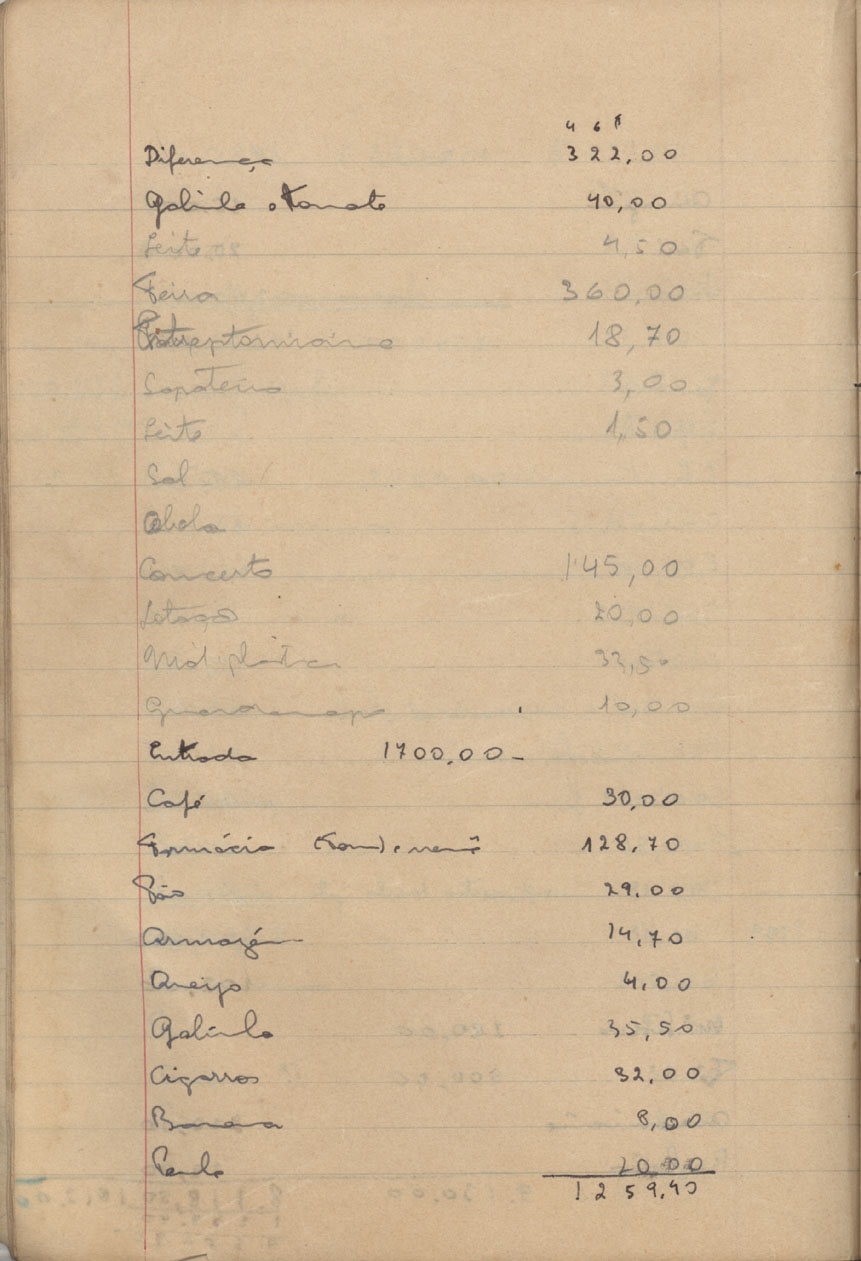 4 6 1
Diferença 322,00
Galinha e tomate 40,00
Leite 4,50
Feira 360,00
18,70
Sapateiro 3,00
Leite 1,50
Sal
Concerto 145,00
Lotação 20,00
33,50
Guardanapo 10,00
Entrada 1700,00-
Café 30,00
Farmácia 128,70
Pão 29,00
Armazém 14,70
4,00
Galinha 35,50
Cigarros 32,00
Banana 8,00
20,00
1259,40